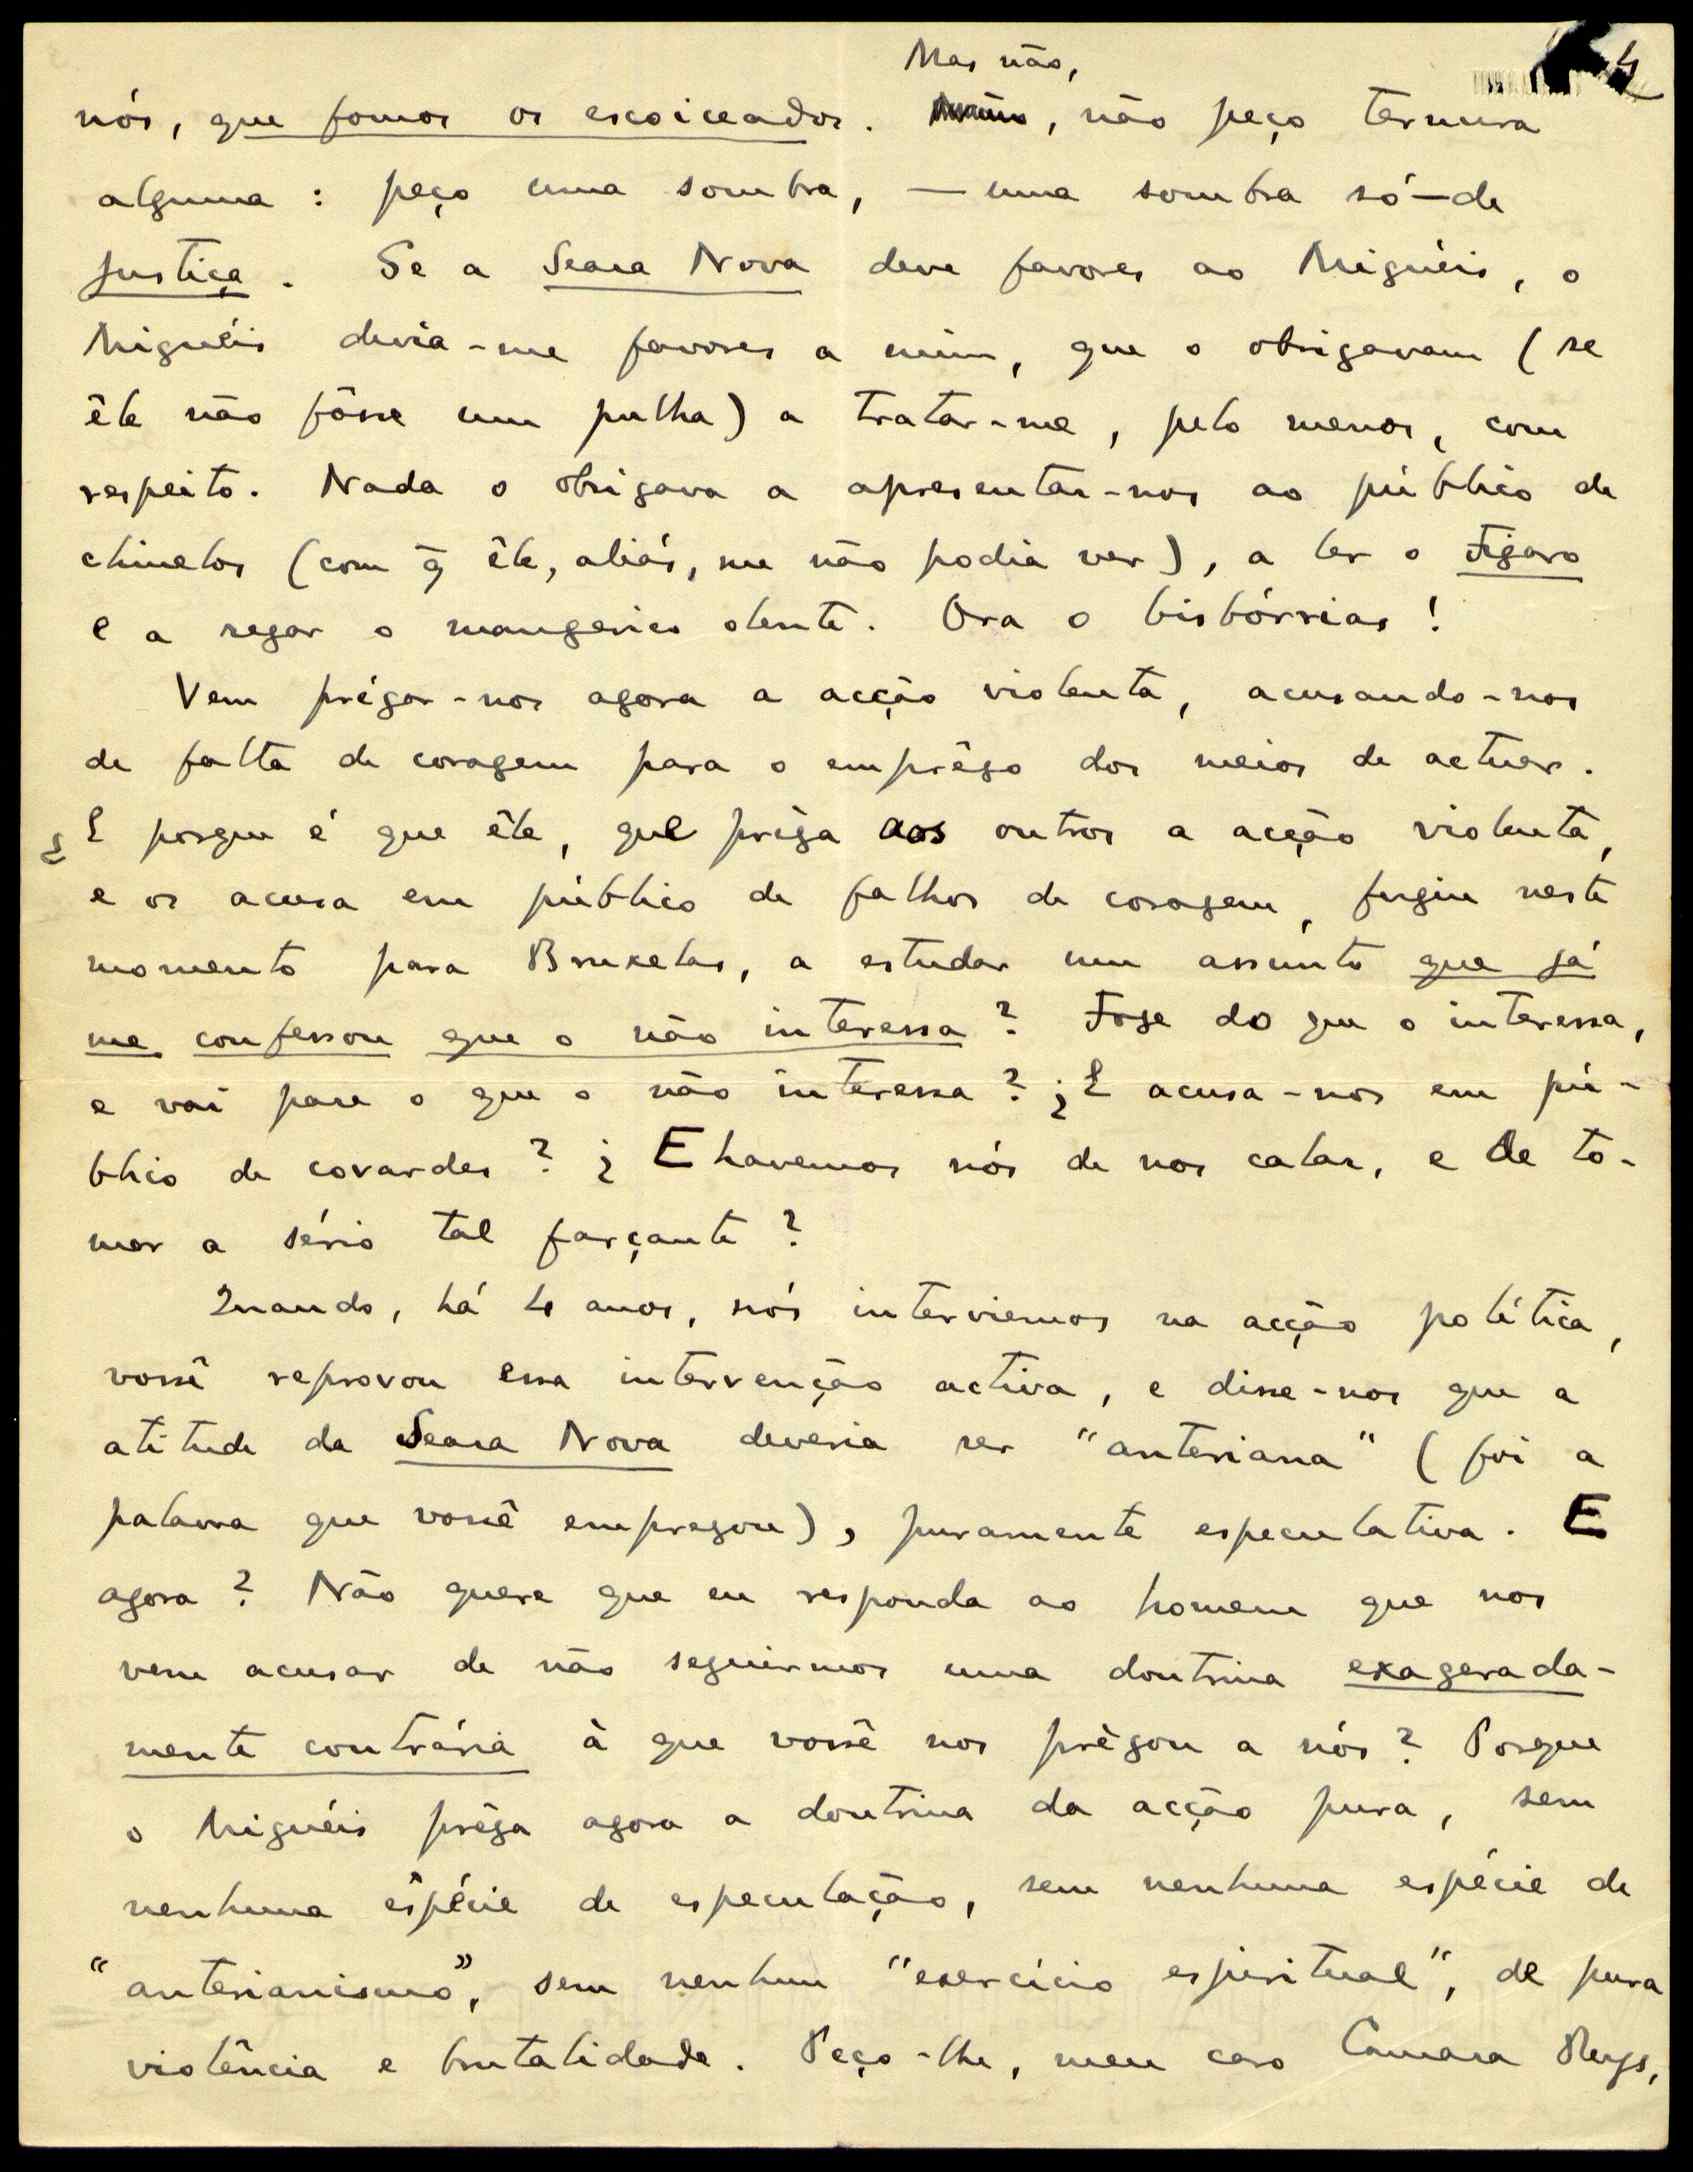 4
Mas não,
nós, que fomos os escoiceados. , não peço ternura
alguma: peço uma sombra, — uma sombra só — de
justiça. Se a Seara Nova deve favores ao Miguéis, o
Miguéis devia-me favores a mim, que o obrigavam (se
êle não fôsse um pulha) a tratar-me, pelo menos, com
respeito. Nada o obrigava a apresentar-nos ao público de
chinelos (com q̃ êle, aliás, me não podia ver), a ler o Figaro
e a regar o mangerico olente. Ora o bisbórrias!
Vem prègar-nos agora a acção violenta, acusando-nos
de falta de coragem para o emprêgo dos meios de actuar.
¿E porque é que êle, que préga aos outros a acção violenta,
e os acusa em público de falhos de coragem, fugiu neste
momento para Bruxelas, a estudar um assunto que já
me confessou que o não interessa? Foge do que o interessa,
e vai para o que o não interessa? ¿E acusa-nos em pú-
blico de covardes? ¿E havemos nós de nos calar, e de to-
mar a sério tal farçante?
Quando, há 4 anos, nós interviemos na acção política,
vossê reprovou essa intervenção activa, e disse-nos que a
atitude da Seara Nova deveria ser "anteriana" (foi a
palavra que vossê empregou), puramente especulativa. E
agora? Não quere que eu responda ao homem que nos
vem acusar de não seguirmos uma doutrina exagerada-
mente contrária à que vossê nos prègou a nós? Porque
o Miguéis préga agora a doutrina da acção pura, sem
nenhuma espécie de especulação, sem nenhuma espécie de
"anterianismo", sem nenhum "exercício espiritual", de pura
violência e brutalidade. Peço-lhe, meu caro Camara Reys,